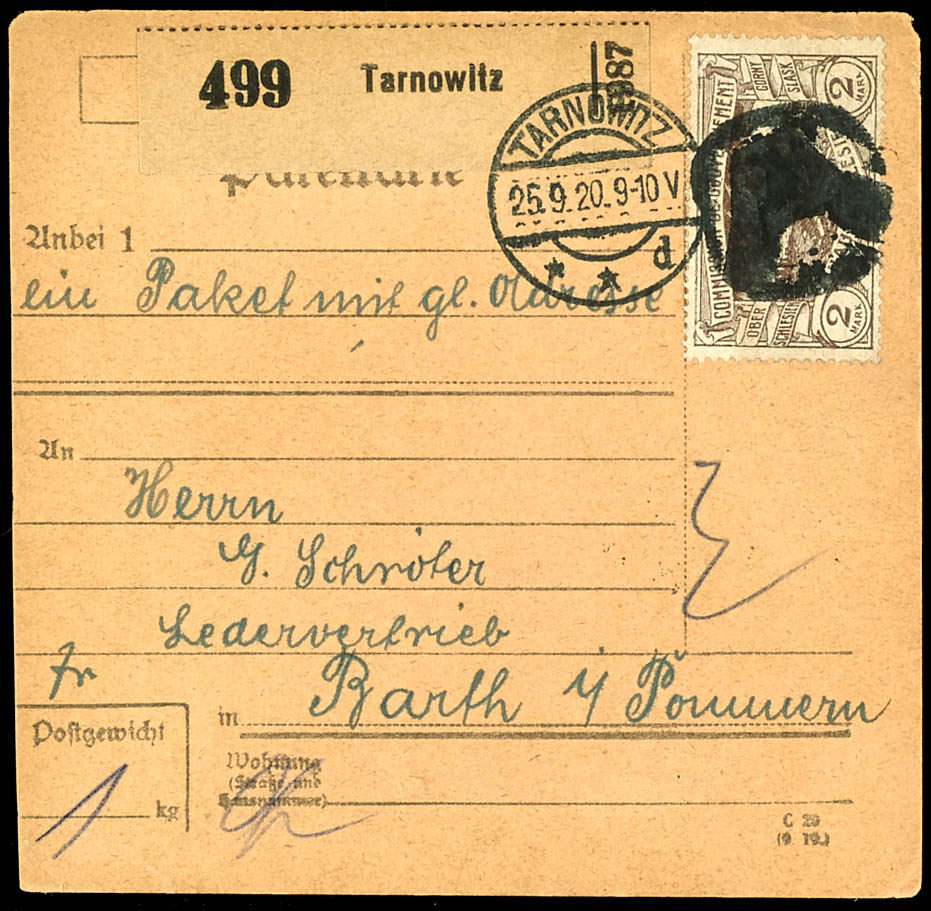 499 Tarnowitz
1987
TARNOWITZ
25.9.20.9-10V
d
COMMISSION DE GOUVERNEMENT
GORNY
SLASK
2
MARK
OBER
SCHLESIEN
2
MARK
Paketkarte
Anbei 1
ein Paket mit gl. Adresse
An
Herrn
G. Schröter
Ledervertrieb
fr
in Barth i/ Pommern
Postgewicht
1 kg
Wohnung
(Straße und
Hausnummer)
C 29
(9. 19.)